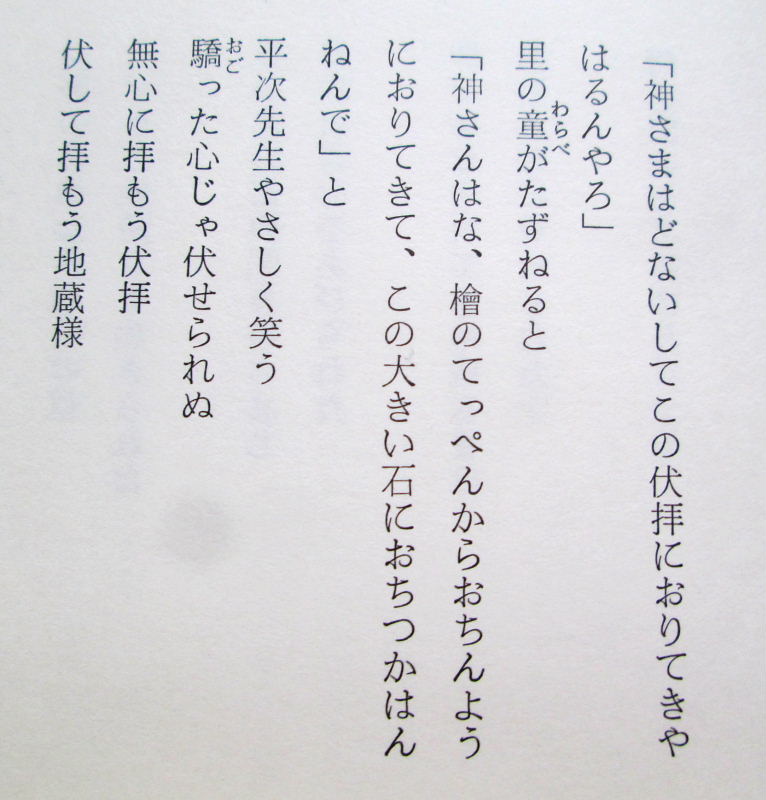 「神さまはどないしてこの伏拝におりてきや
はるんやろ」
里の童がたずねると
わらべ
「神さんはな、檜のてっぺんからおちんよう
におりてきて、この大きい石におちつかはん
ねんで」と
平次先生やさしく笑う
驕った心じゃ伏せられぬ
おご
無心に拝もう伏拝
伏して拝もう地蔵様